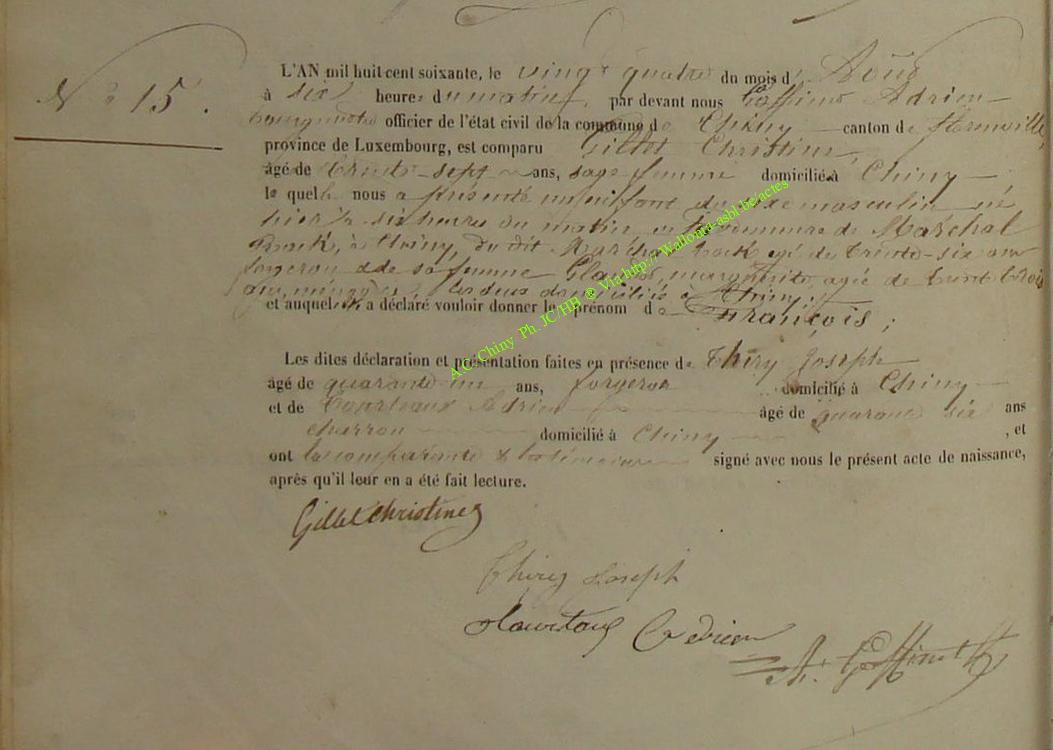 N° 15.
L'AN mil huit cent soixante, le vingt quatre du mois d' Août
à six heures du matin, par devant nous Goffinet Adrien
bourgmestre officier de l'état civil de la commune de Chiny canton de florenville,
province de Luxembourg, est comparu Gillet Christine,
âgé de trente-sept ans, sage femme domicilié à Chiny
lequel nous a présenté un enfant du sexe masculin né
hier à six heures du matin, en demeure de Maréchal
à Chiny, du dit Maréchal agé de trente-six ans
forgeron & de sa femme marguerite, agée de trente trois
ans, ménagère les deux domiciliés à Chiny;
et auquel a déclaré vouloir donner le prénom de François;
Les dites déclaration et présentation faites en présence de Thiry Joseph
âgé de quarante un ans, forgeron domicilié à Chiny
et de Courteaux Adrien âgé de quarante six ans
charron domicilié à Chiny , et
ont la comparante & les témoins signé avec nous le présent acte de naissance,
après qu'il leur en a été fait lecture.
Gillet Christine
Thiry Joseph
Adrien
A. Goffinet
A.C. Chiny Ph. JC/HB ® Via http://Wallonia-asbl.be/actes